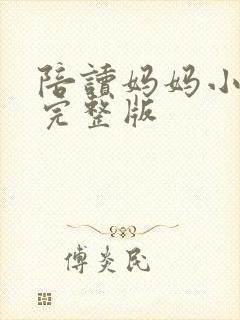 陪讀妈妈小
完整版
傅炎民